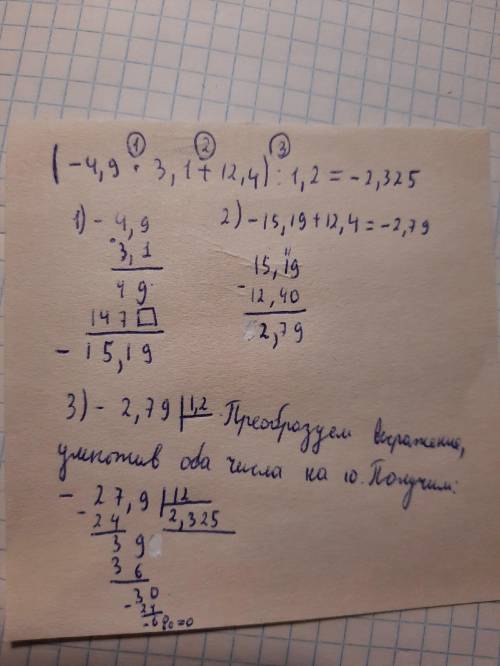 ① ② ③
(-4,9 · 3,1 + 12,4) : 1,2 = -2,325
1) - 4,9
· 3,1
4 9
147□
- 15,19
2) -15,19 + 12,4 = -2,79
15,19
- 12,40
2,79
3) - 2,79 | 1,2 . Преобразуем выражение,
умножив оба числа на 10. Получим:
- 27,9 | 12
- 24 2,325
3 9
3 6
- 30
24